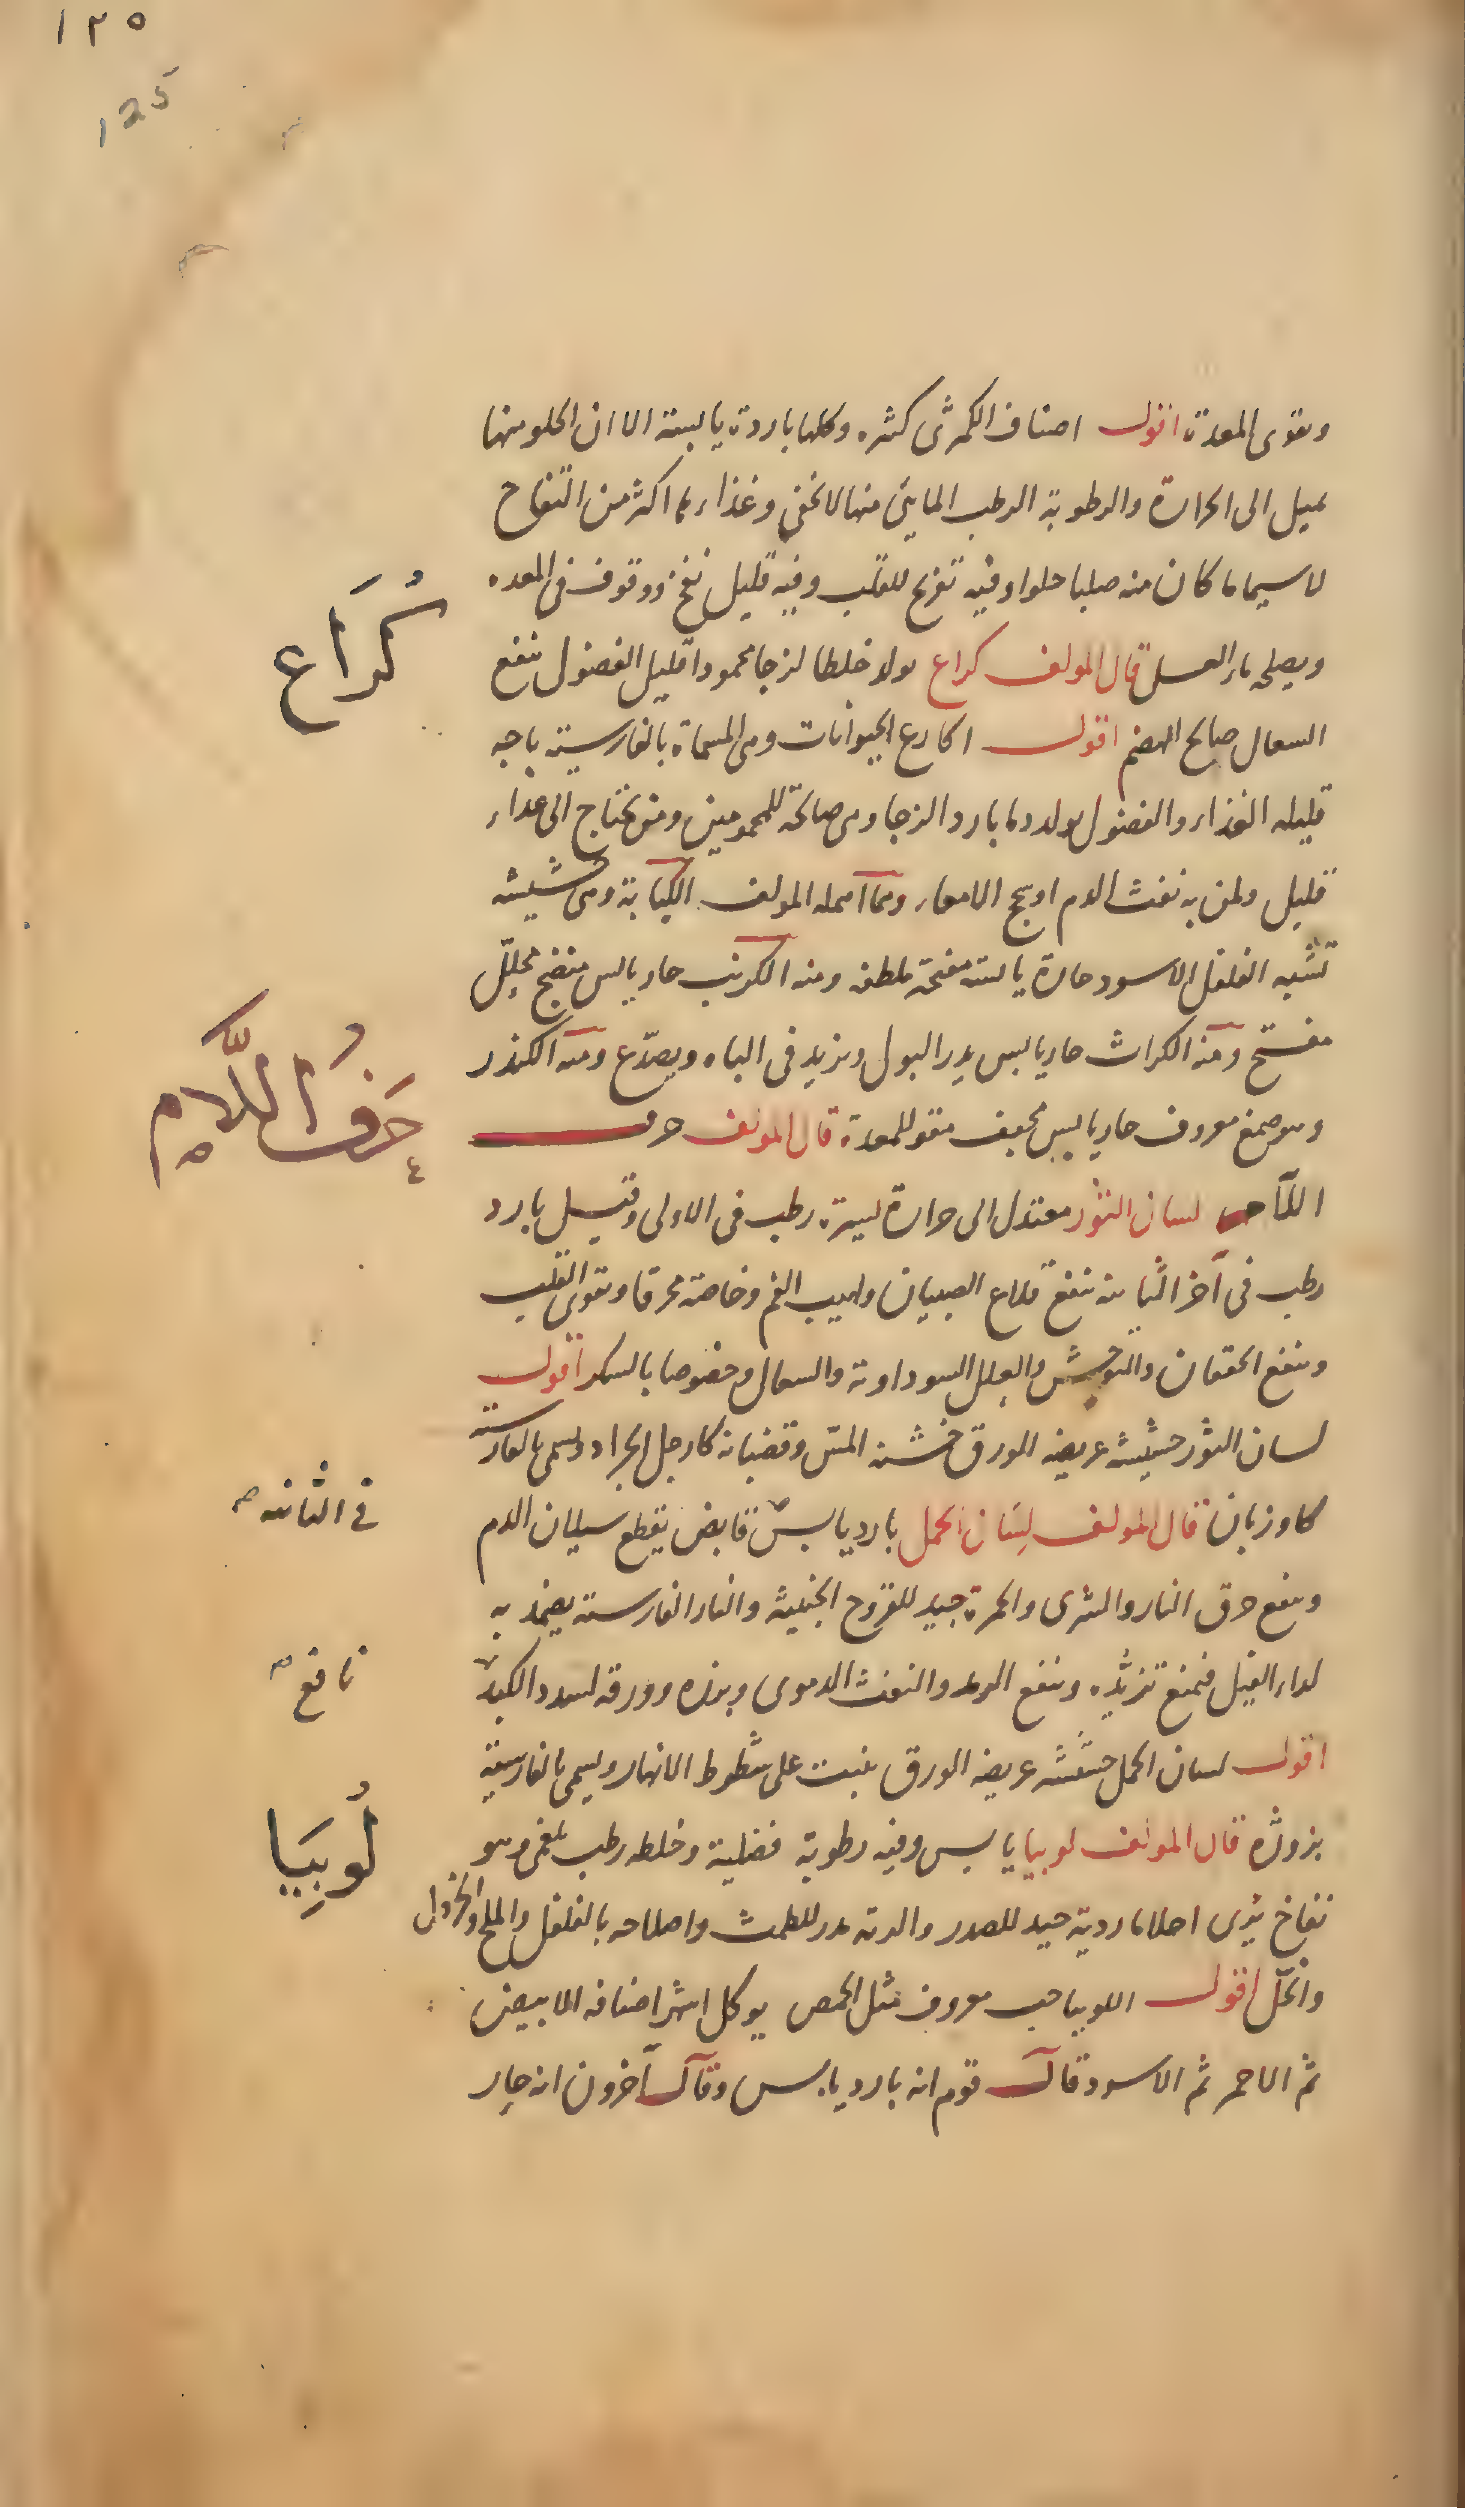 ١٢٥
125
ويقوى المعدة اقول اصناف الكمثرى كثيره وكلها باردة يابسة الا ان الحلو منها
يميل الى الحرارة والرطوبة الرطب المايى منها لا يخفى وغذاءها اكثر من التفاح
لا سيما ما كان منه صلبا حلوا وفيه تفريح للقلب وفيه قليل نفخ ووقوف فى المعده
ويصلحه ماء العسل قال المولف كراع يولد خلطا لزجا محمودا قليل الفضول ينفع
كُرَاع
السعال صالح الهضم اقول اكارع الحيوانات وهى المسماة بالفارسية باجه
قليله الغذاء والفضول يولد دما باردا لزجا وهى صالحة للمحمومين ومن يحتاج الى غذاء
قليل ولمن به نفث الدم او سحج الامعاء ومما اهمله المولف الكبابة وهى حشيشه
تشبه الفلفل الاسود حارة يابسة مفتحة ملطفه ومنه الكرنب حار يابس منضج محلّل
مفتح ومنه الكراث حار يابس يدر البول ويزيد فى الباه ويصدّع ومنه الكندر
وهو صمغ معروف حار يابس مجفف مقو للمعدة قال المولف حرف
حَرفُ اللَّام
اللام لسان الثور معتدل الى حرارة يسيرة رطب فى الاولى وقيل بارد
رطب فى آخر الثانية ينفع قلاع الصبيان ولهيب الفم وخاصة محرقا ويقوى القلب
وينفع الخفقان والتوحش والعلل السوداوية والسعال وخصوصا بالسكر اقول
لسان الثور حشيشة عريضه الورق خشنه المسّ وقضبانه كارجل الجراد ويسمى بالفارسية
كاوزبان قال المولف لِسَان الحمل بارد يابس قابض يقطع سيلان الدم
فى الثانيه
وينفع حرق النار والشرى والحمرة جيد للقروح الخبيثة والنار الفارسية يضمد به
لداء الفيل فيمنع تزيّده وينفع الرمد والنفث الدموى وبزره وورقه لسدد الكبد
نافع
اقول لسان الحمل حشيشه عريضه الورق ينبت على شطوط الانهار ويسمى بالفارسية
بزوشه قال المولف لوبيا يابس وفيه رطوبة فضلية وخلطه رطب بلغمى وهو
لُوبِيَا
نفاخ يُرى احلاما ردية جيد للصدر والرية مدر للطمث واصلاحه بالفلفل والملح والخردل
والخل اقول اللوبيا حب معروف مثل الحمص يوكل اشهر اصنافه الابيض
ثم الاحمر ثم الاسود قال قوم انه بارد يابس وقال آخرون انه حار